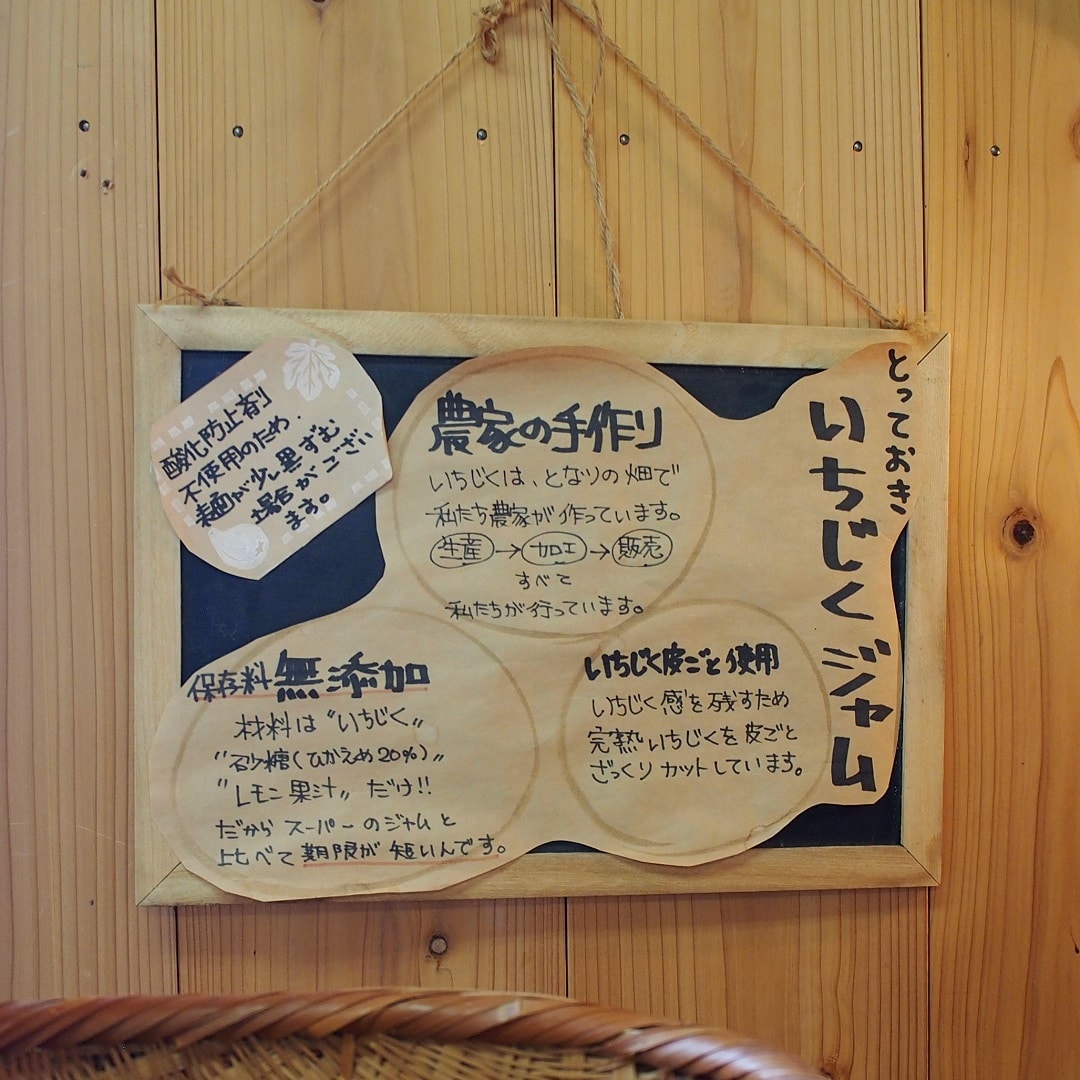 とっておき
いちじくジャム
農家の手作り
いちじくは、となりの畑で
私たち農家が作っています。
生産→加工→販売
すべて
私たちが行っています。
酸化防止剤
不使用のため、
麺が少し黒ずむ
場合がござい
ます。
保存料無添加
材料は〝いちじく〟
〝砂糖(ひかえめ20%)〟
〝レモン果汁〟だけ!!
だから スーパーのジャムと
比べて期限が短いんです。
いちじく皮ごと使用
いちじく感を残すため
完熟いちじくを皮ごと
ざっくりカットしています。